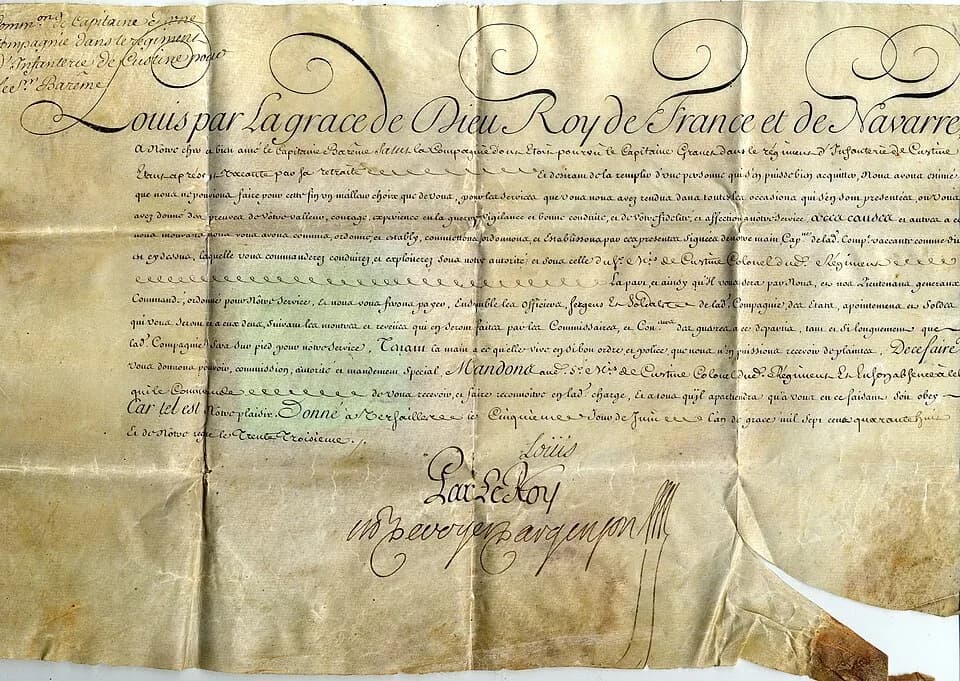 Comm.on de Capitaine d'une
Compagnie dans le regiment
d'Infanterie de Custine pour
le S.r Barême
Louis par La grace de Dieu Roy de France et de Navarre,
A Notre cher et bien amé le Capitaine Barême Salut La Compagnie dont Etoit pourvû le Capitaine Granet dans le regiment d'Infanterie de Custine
Etant apresent vacante par sa retraite Et desirant de la remplir d'une personne qui s'en puisse bien acquitter, Nous avons estimé
que nous ne pouvions faire pour cette fin un meilleur choix que de vous, pour les services que vous nous avez rendus dans toutes les occasions qui s'en sont presentées, ou vous
avez donné des preuves de votre valleur, courage, experience en la guerre, vigilance et bonne conduite, et de votre fidelité, et affection a notre service, a ces causes et autres a ce
nous mouvans nous vous avons commis, ordonné, et etably, commettons, ordonnons, et Etablissons par ces presentes signées de notre main Cap.ne de lad. Comp.e vaccante comme dit
est cy dessus, laquelle vous commanderez conduirez et exploiterez sous notre autorité, et sous celle du S. M.is de Custine Colonel dud. Regiment
La part, et ainsy qu'il vous sera par Nous, et nos Lieutenans generaux
Commandé, ordonné pour Notre Service, Et nous vous ferons payer, Ensemble les Officiers, Sergens Et Soldats de lad. Compagnie des Etats, apointemens et Soldes
qui vous seront et a eux deus, suivant les montres et reveües qui en seront faites par les Commissaires, et Con.eurs des guerres a ce departis, tant et si longuement que
lad. Compagnie sera sur pied, pour notre service, Tenant la main a ce qu'elle vive en si bon ordre et police, que nous n'en puissions recevoir de plaintes, De ce faire
Vous donnons pouvoir, commission, autorité et mandement special Mandons aud. S.r M.is de Custine Colonel dud. Regiment Et En son absence a celui
qui le Commande de vous recevoir, et faire reconnoitre en lad. charge, Et a tous qu'il apartiendra qu'a vous en ce faisant soit obey
Car tel est Notre plaisir. Donné a Versailles le Cinquieme Jour de Juin L'an de grace mil sept cens quarante huit
Et de Notre regne le Trente Troisieme.
Louis
Par Le Roy
De voyer D'argenson